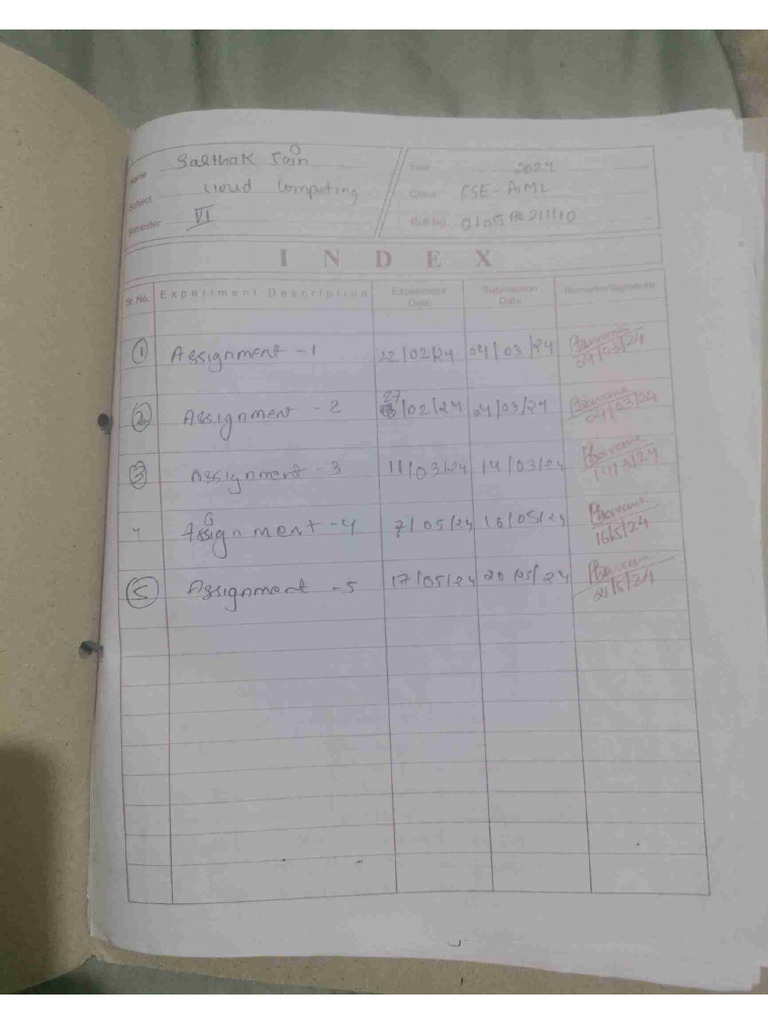 Name Sarthak Jain
Subject Cloud Computing
Semester VI
Year 2024
Class CSE-AIML
Roll No. 0105AL211110
INDEX
Sr. No. Experiment Description Experiment Date Submission Date Remarks/Signature
1 Assignment - 1 22/02/24 04/03/24 04/03/24
2 Assignment - 2 27/02/24 04/03/24 04/03/24
3 Assignment - 3 11/03/24 14/03/24 14/3/24
4 Assignment - 4 7/05/24 16/05/24 16/5/24
5 Assignment - 5 17/05/24 20/05/24 21/5/24